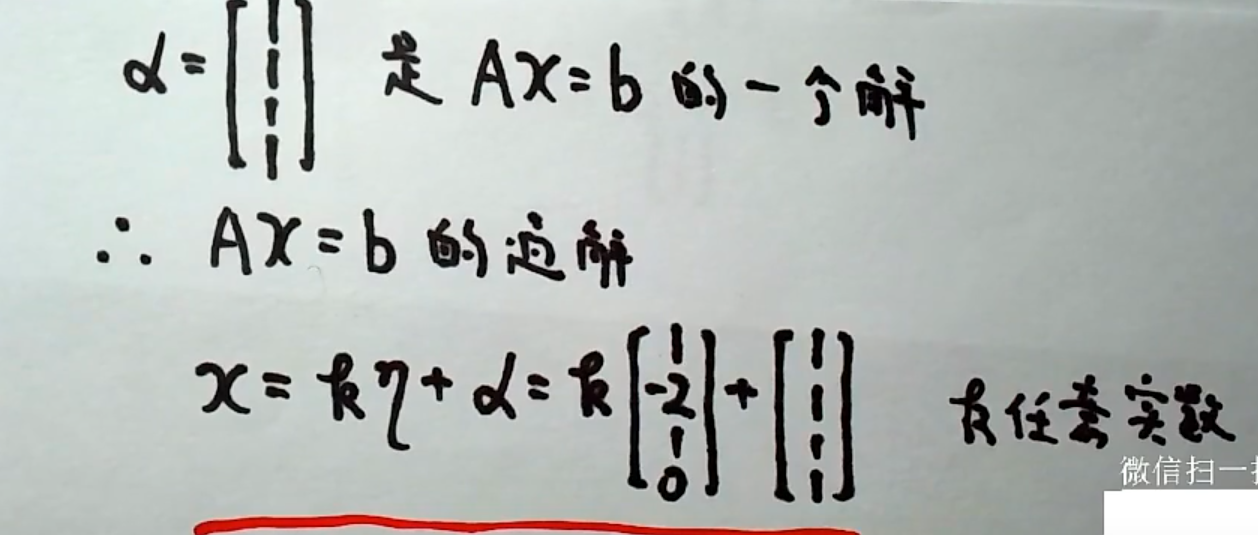 α = [1 1 1 1] 是 Ax = b 的一个解
∴ Ax = b 的通解
x = kη + α = k [1 -2 1 0] + [1 1 1 1] k任意实数
微信扫一